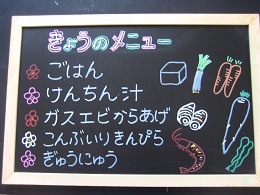 きょうのメニュー
ごはん
けんちん汁
ガスエビからあげ
こんぶいりきんぴら
ぎゅうにゅう